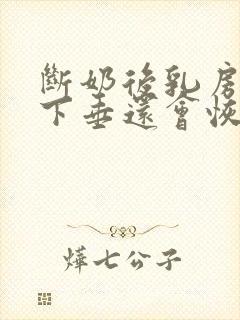 斷奶後乳房
下垂還會恢
燁七公子